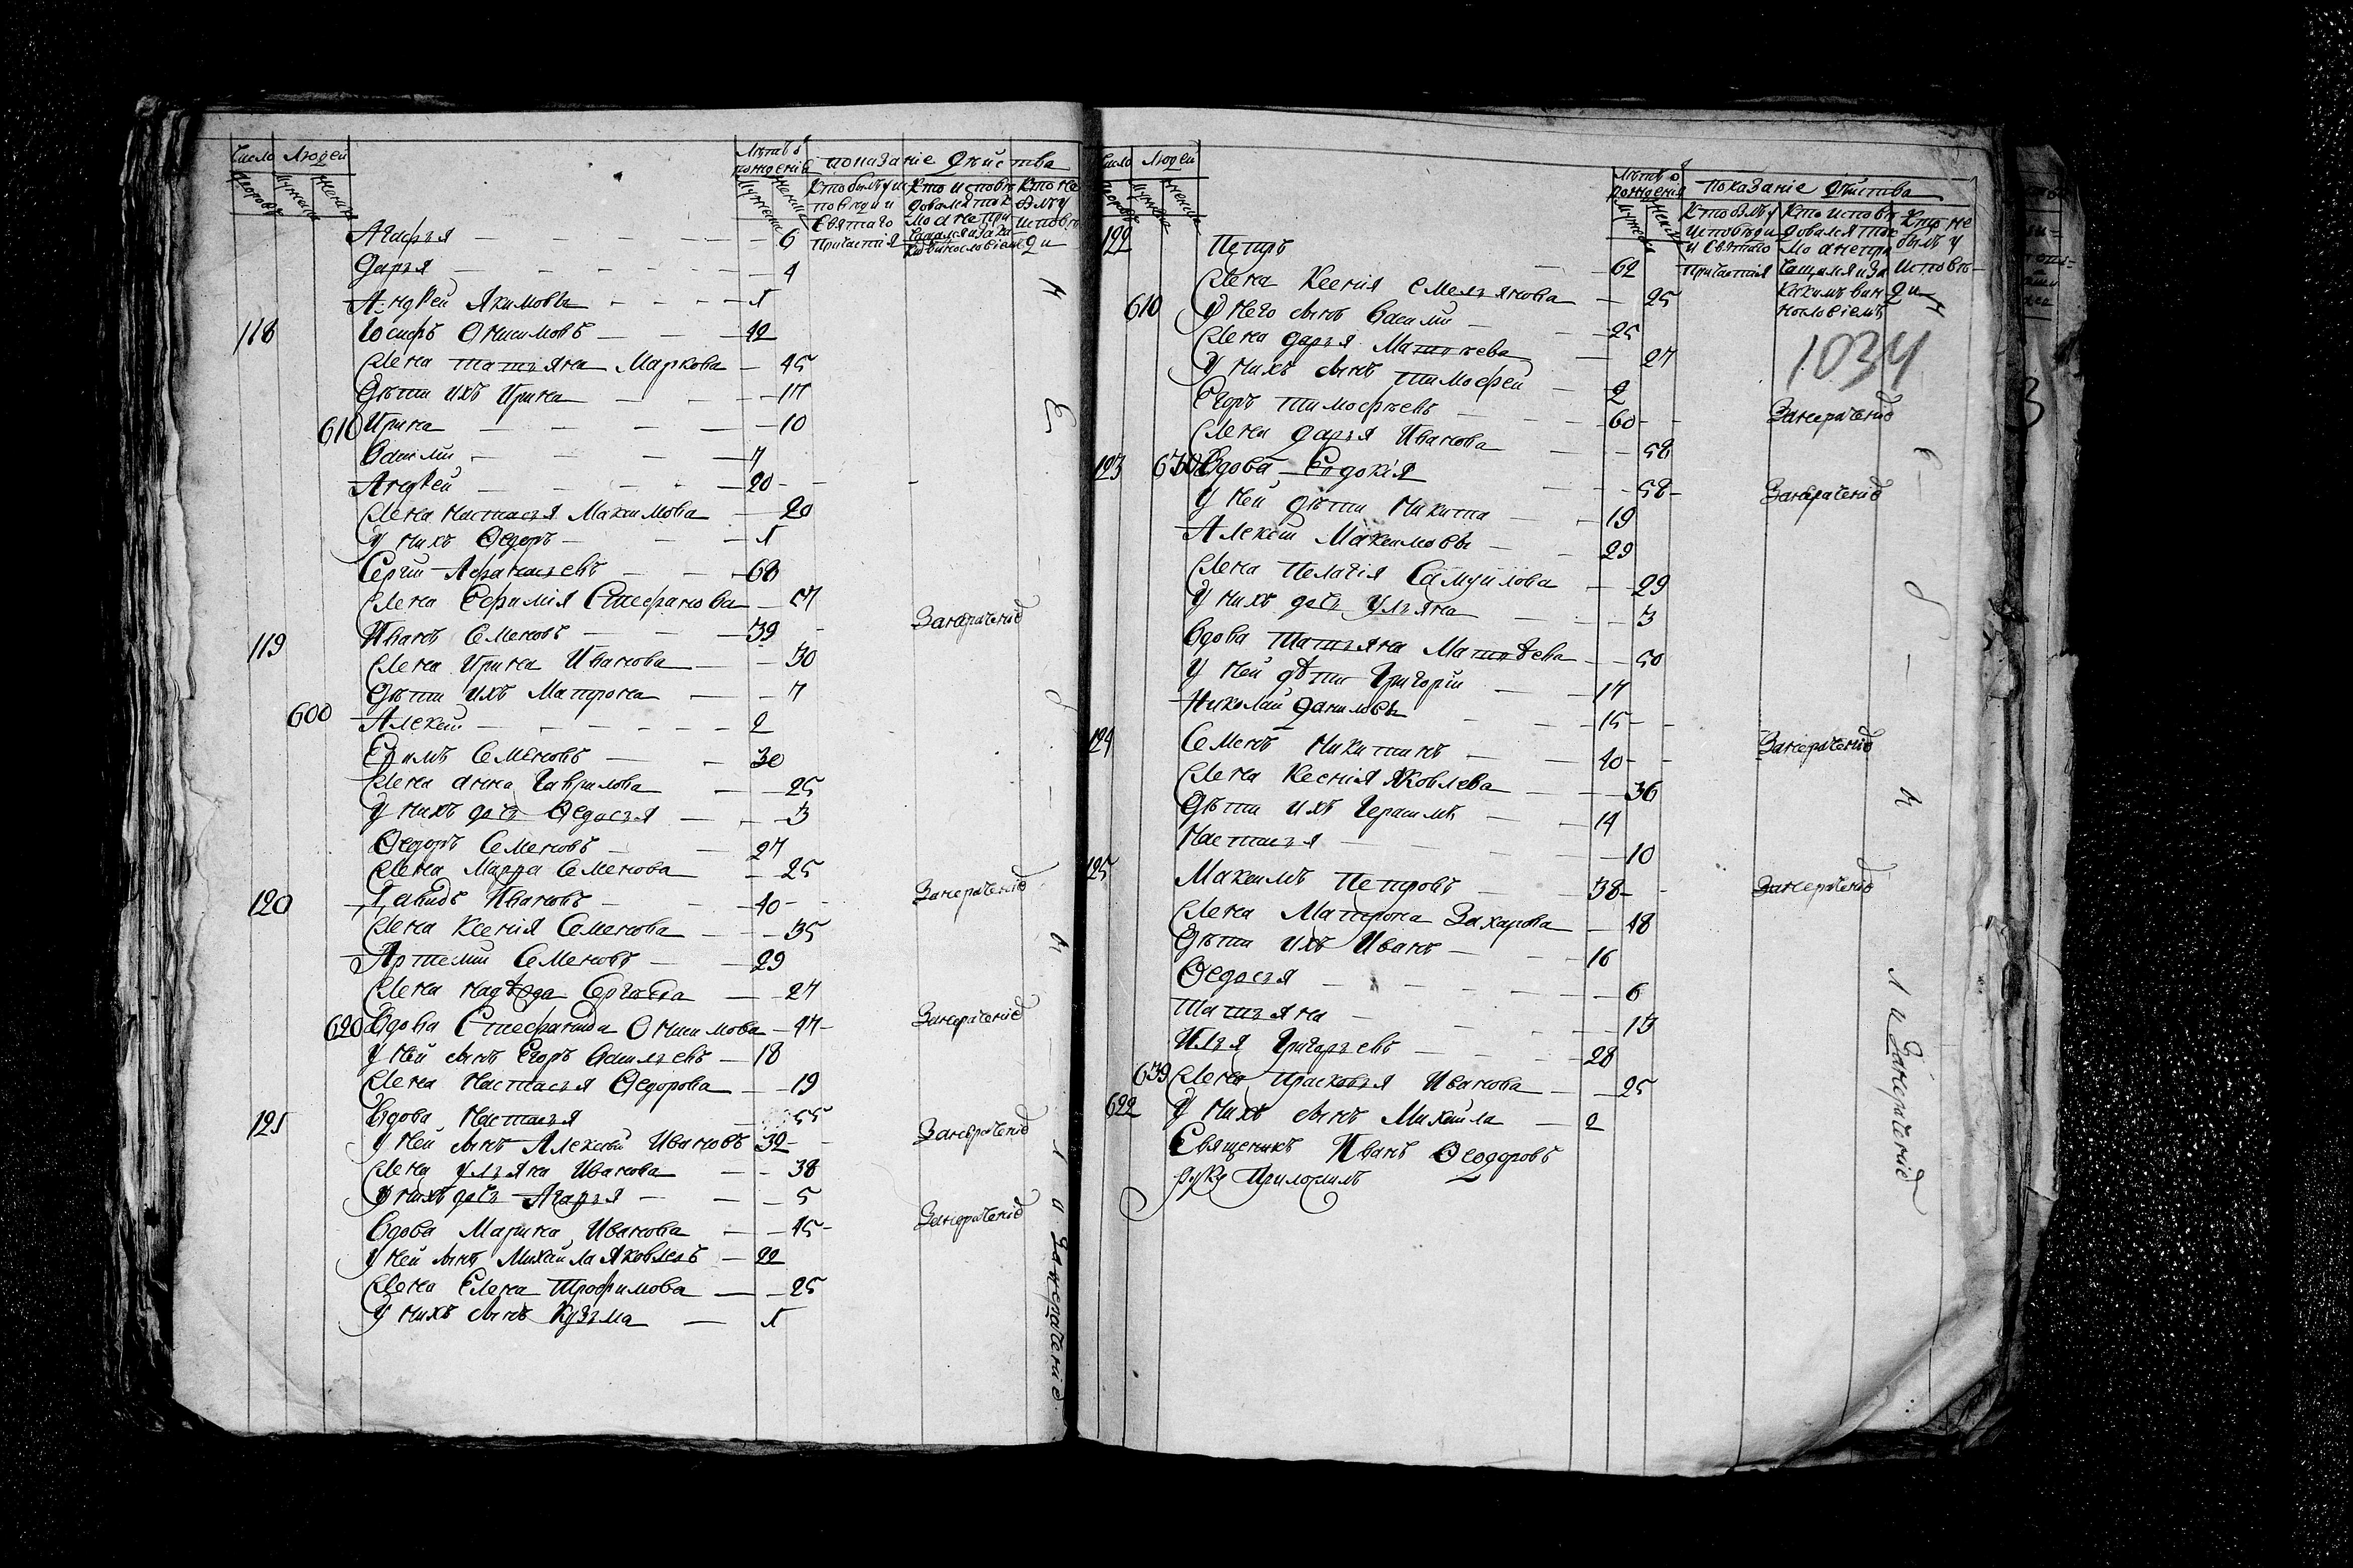 Число Людей
Дворовъ Мужеска Женска
Лѣтъ о рожденія
Мужеска Женска
показаніе Дѣйства
Кто былъ у исповѣди и Святаго Причастія
Кто исповѣдовался токмо а не причащался и за какимъ винословіемъ
Кто не былъ у исповѣди
Агафья 6
Дарья 4
Андрей Якимовъ 1
118 Иосифъ Онисимовъ 42
Жена татьяна Маркова 45
Дѣти ихъ Ирина 17
610 Ирина 10
Василий 7
Андрей 20
Жена настасья Максимова 20
У нихъ Ѳедоръ 1
Сергий Афанасьевъ 60
Жена Ефимія Стефанова 57
119 Иванъ Семеновъ 39 Занерачениѣ
Жена Ирина Иванова 30
Дѣти ихъ Матрона 7
600 Алексей 2
Семеновъ 30
Жена анна Гаврилова 25
У нихъ дочь Ѳедосья 3
Ѳедоръ Семеновъ 27
Жена Марфа Семенова 25
120 Давидъ Ивановъ 40 Занерачениѣ
Жена Ксенія Семенова 35
Артемий Семеновъ 29
Жена Сергѣева 27
620 Вдова Стефанида Онисимова 47 Занерачениѣ
У ней сынъ Егоръ Васильевъ 18
Жена Настасья Ѳедорова 19
121 Вдова Настасья 55
У ней сынъ Алексѣй Ивановъ 32 Занерачениѣ
Жена Ульяна Иванова 38
У нихъ дочь Агафья 5
Вдова Марина Иванова 45 Занерачениѣ
У ней сынъ Михайла Яковлевъ 22
Жена Елена Трофимова 25
У нихъ сынъ Кузьма 1
и Занерачениѣ
Число Людей
Дворовъ Мужеска Женска
Лѣтъ о рожденія
Мужеска Женска
показаніе дѣйства
Кто былъ у исповѣди и Святаго Причастія
Кто исповѣдовался токмо а непричащался и за какимъ винословіемъ
Кто не былъ у исповѣди
1034
122 Петръ 62
Жена Ксенія Емельянова 25
610 У него сынъ Василий 25
Жена дарья Матвѣева 27
У нихъ сынъ тимофей 2
Егоръ тимофѣевъ 60 Занерачениѣ
Жена дарья Иванова 58
123 630 Вдова Евдокія 58 Занерачениѣ
У ней дѣти Никита 19
Алексей Максимовъ 29
Жена Пелагія Самуйлова 29
У нихъ дочь Ульяна 3
Вдова татьяна Матвѣева 50
У ней дѣти Григорій 17
Николай Даниловъ 15
124 Семенъ Никитинъ 40 Занерачениѣ
Жена Ксенія Яковлева 36
Дѣти ихъ Герасимъ 14
Настасья 10
125 Максимъ Петровъ 38 Занерачениѣ
Жена Матрона Захарова 48
Дѣти ихъ Иванъ 16
Ѳедосья 6
Татьяна 13
Илья Григорьевъ 28
639 Жена прасковья Иванова 25
622 У нихъ сынъ Михайла 2
Священикъ Иванъ Ѳеодоровъ
руку Приложилъ
и Занерачениѣ